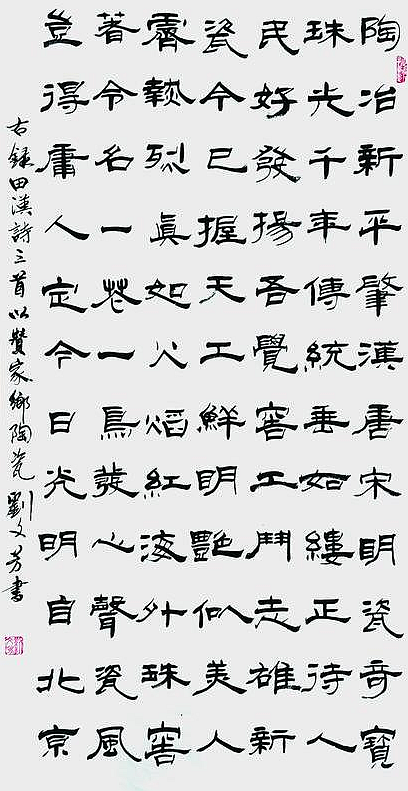 陶冶新平肇漢唐宋明瓷奇寶
珠光千年傳統垂如縷正待人
民好發揚吾覺窖工鬥志雄新
瓷今已握天工鮮明艷似美人
霽烈眞如火焰紅海外珠窖
著令名一花一鳥發心聲瓷風
豈得庸人定今日光明自北京
右錄田漢詩三首以贊家鄉陶瓷劉文芳書